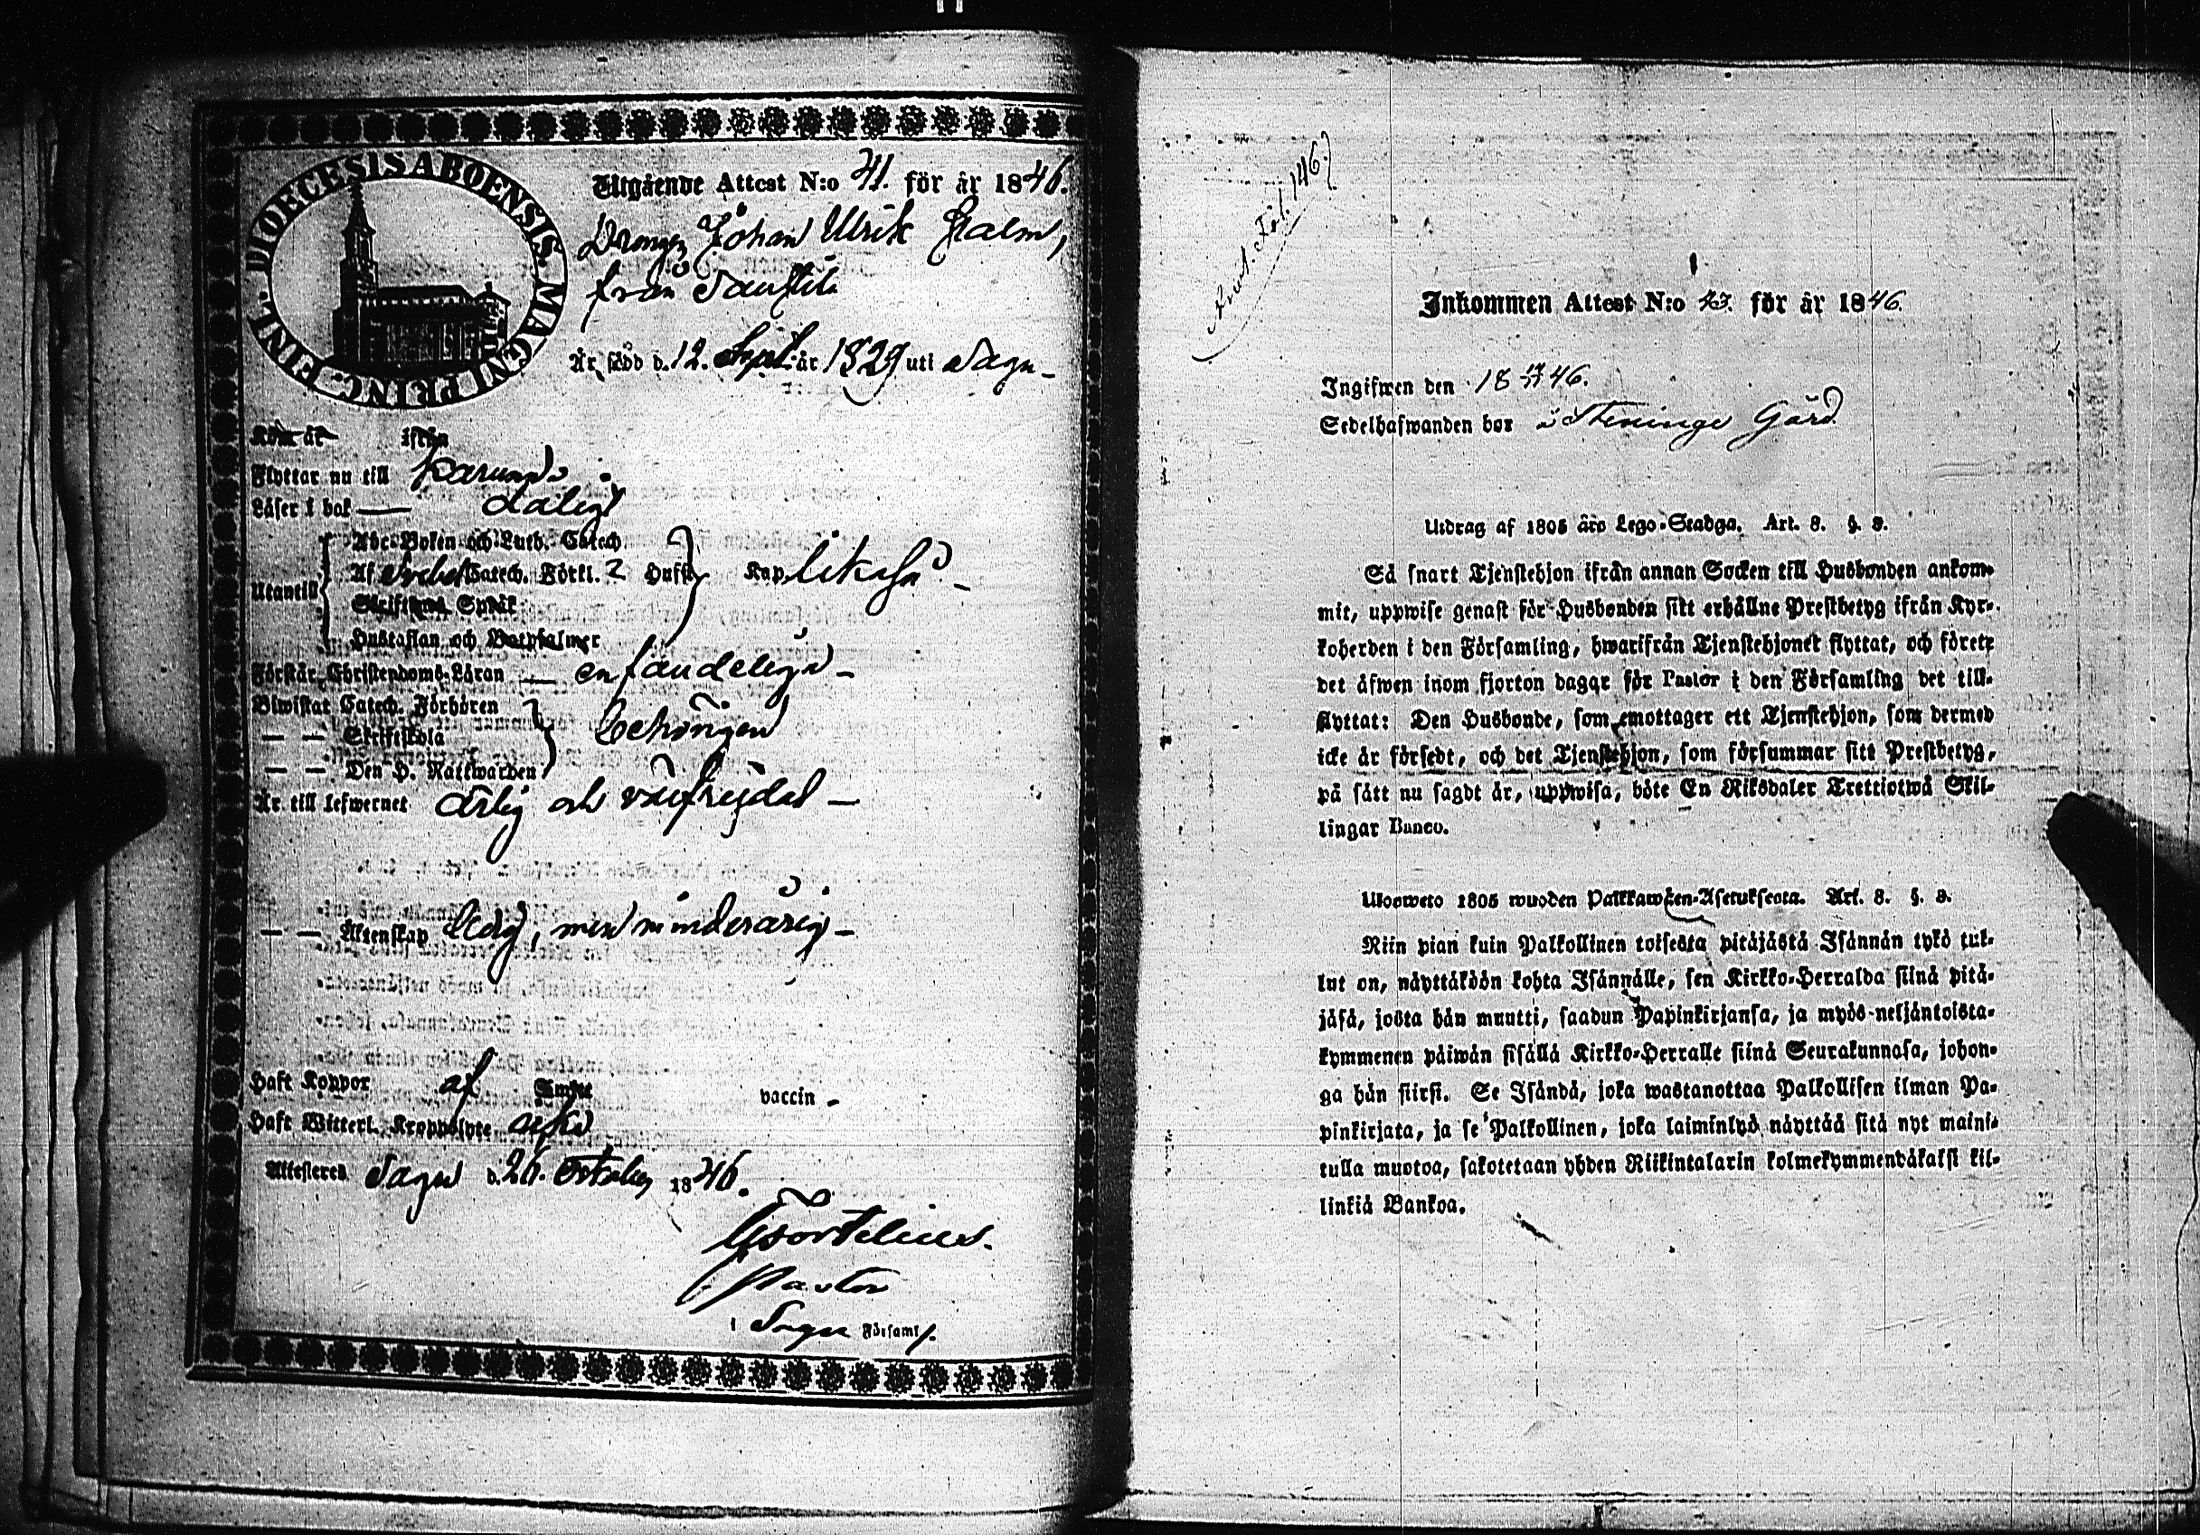 DIOECESIS ABOENSIS. MAGNI PRINC. FINL.
Utgående Attest N:o 41. för år 1846.
Drengen Johan Ulrik
från
Är född d. 12. Sept. år 1829 uti Sagu
Kom år ifrån
Flyttar nu till Karuna
Läser i bok dåligt
Utantill
Abc-Boken och Luth. Catech
Af Svebel. Catech. Förkl. 2 Hufst. Kap. likaså
Skriftens Språk
Hustaflan och Botpsalmer
Förstår Christendoms-Läran
Biwistat Catech. Förhören
— — Skriftskola behörigen
— — Den H. Nattwarden
Är till lefwernet ärlig och välfrejdad
— — Äktenskap ledig, men minderårig
Haft Koppor af vaccin
Haft Witterl. Kroppslyte
Attesteras Sagu d. 26. October 1846.
Pastor
i Sagu Församl.
Inkommen Attest N:o 43. för år 1846.
Ingifwen den 18 46.
Sedelhafwanden bor å Steninge Gård
Utdrag af 1805 års Lego-Stadga. Art. 8. §. 9.
Så snart Tjenstehjon ifrån annan Socken till Husbonden ankom-
mit, uppwise genast för Husbonden sitt erhållne Prestbetyg ifrån Kyr-
koherden i den Församling, hwarifrån Tjenstehjonet flyttat, och förete
det äfwen inom fjorton dagar för Pastor i den Församling det till-
flyttat: Den Husbonde, som emottager ett Tjenstehjon, som dermed
icke är försedt, och det Tjenstehjon, som försummar sitt Prestbetyg,
på sätt nu sagdt är, uppwisa, böte En Riksdaler Trettiotwå Skil-
lingar Banco.
Ulosweto 1805 wuoden Palkkawäen-Asetuksesta. Art. 8. §. 9.
Niin pian kuin Palkollinen toisesta pitäjästä Isännän tykö tul-
lut on, näyttäköön kohta Isännälle, sen Kirkko-Herralda siinä pitä-
jäsä, josta hän muutti, saadun Papinkirjansa, ja myös neljäntoista-
kymmenen päiwän sisällä Kirkko-Herralle siinä Seurakunnasa, johon-
ga hän siirsi. Se Isändä, joka wastanottaa Palkollisen ilman Pa-
pinkirjata, ja se Palkollinen, joka laiminlyö näyttää sitä nyt maini-
tulla muotoa, sakotetaan yhden Riikintalarin kolmekymmendäkaksi kil-
linkiä Bankoa.